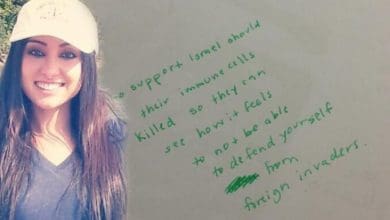 o support Israel should
their immune cells
killed so they can
see how it feels
to not be able
to defend yourself
from
foreign invaders.